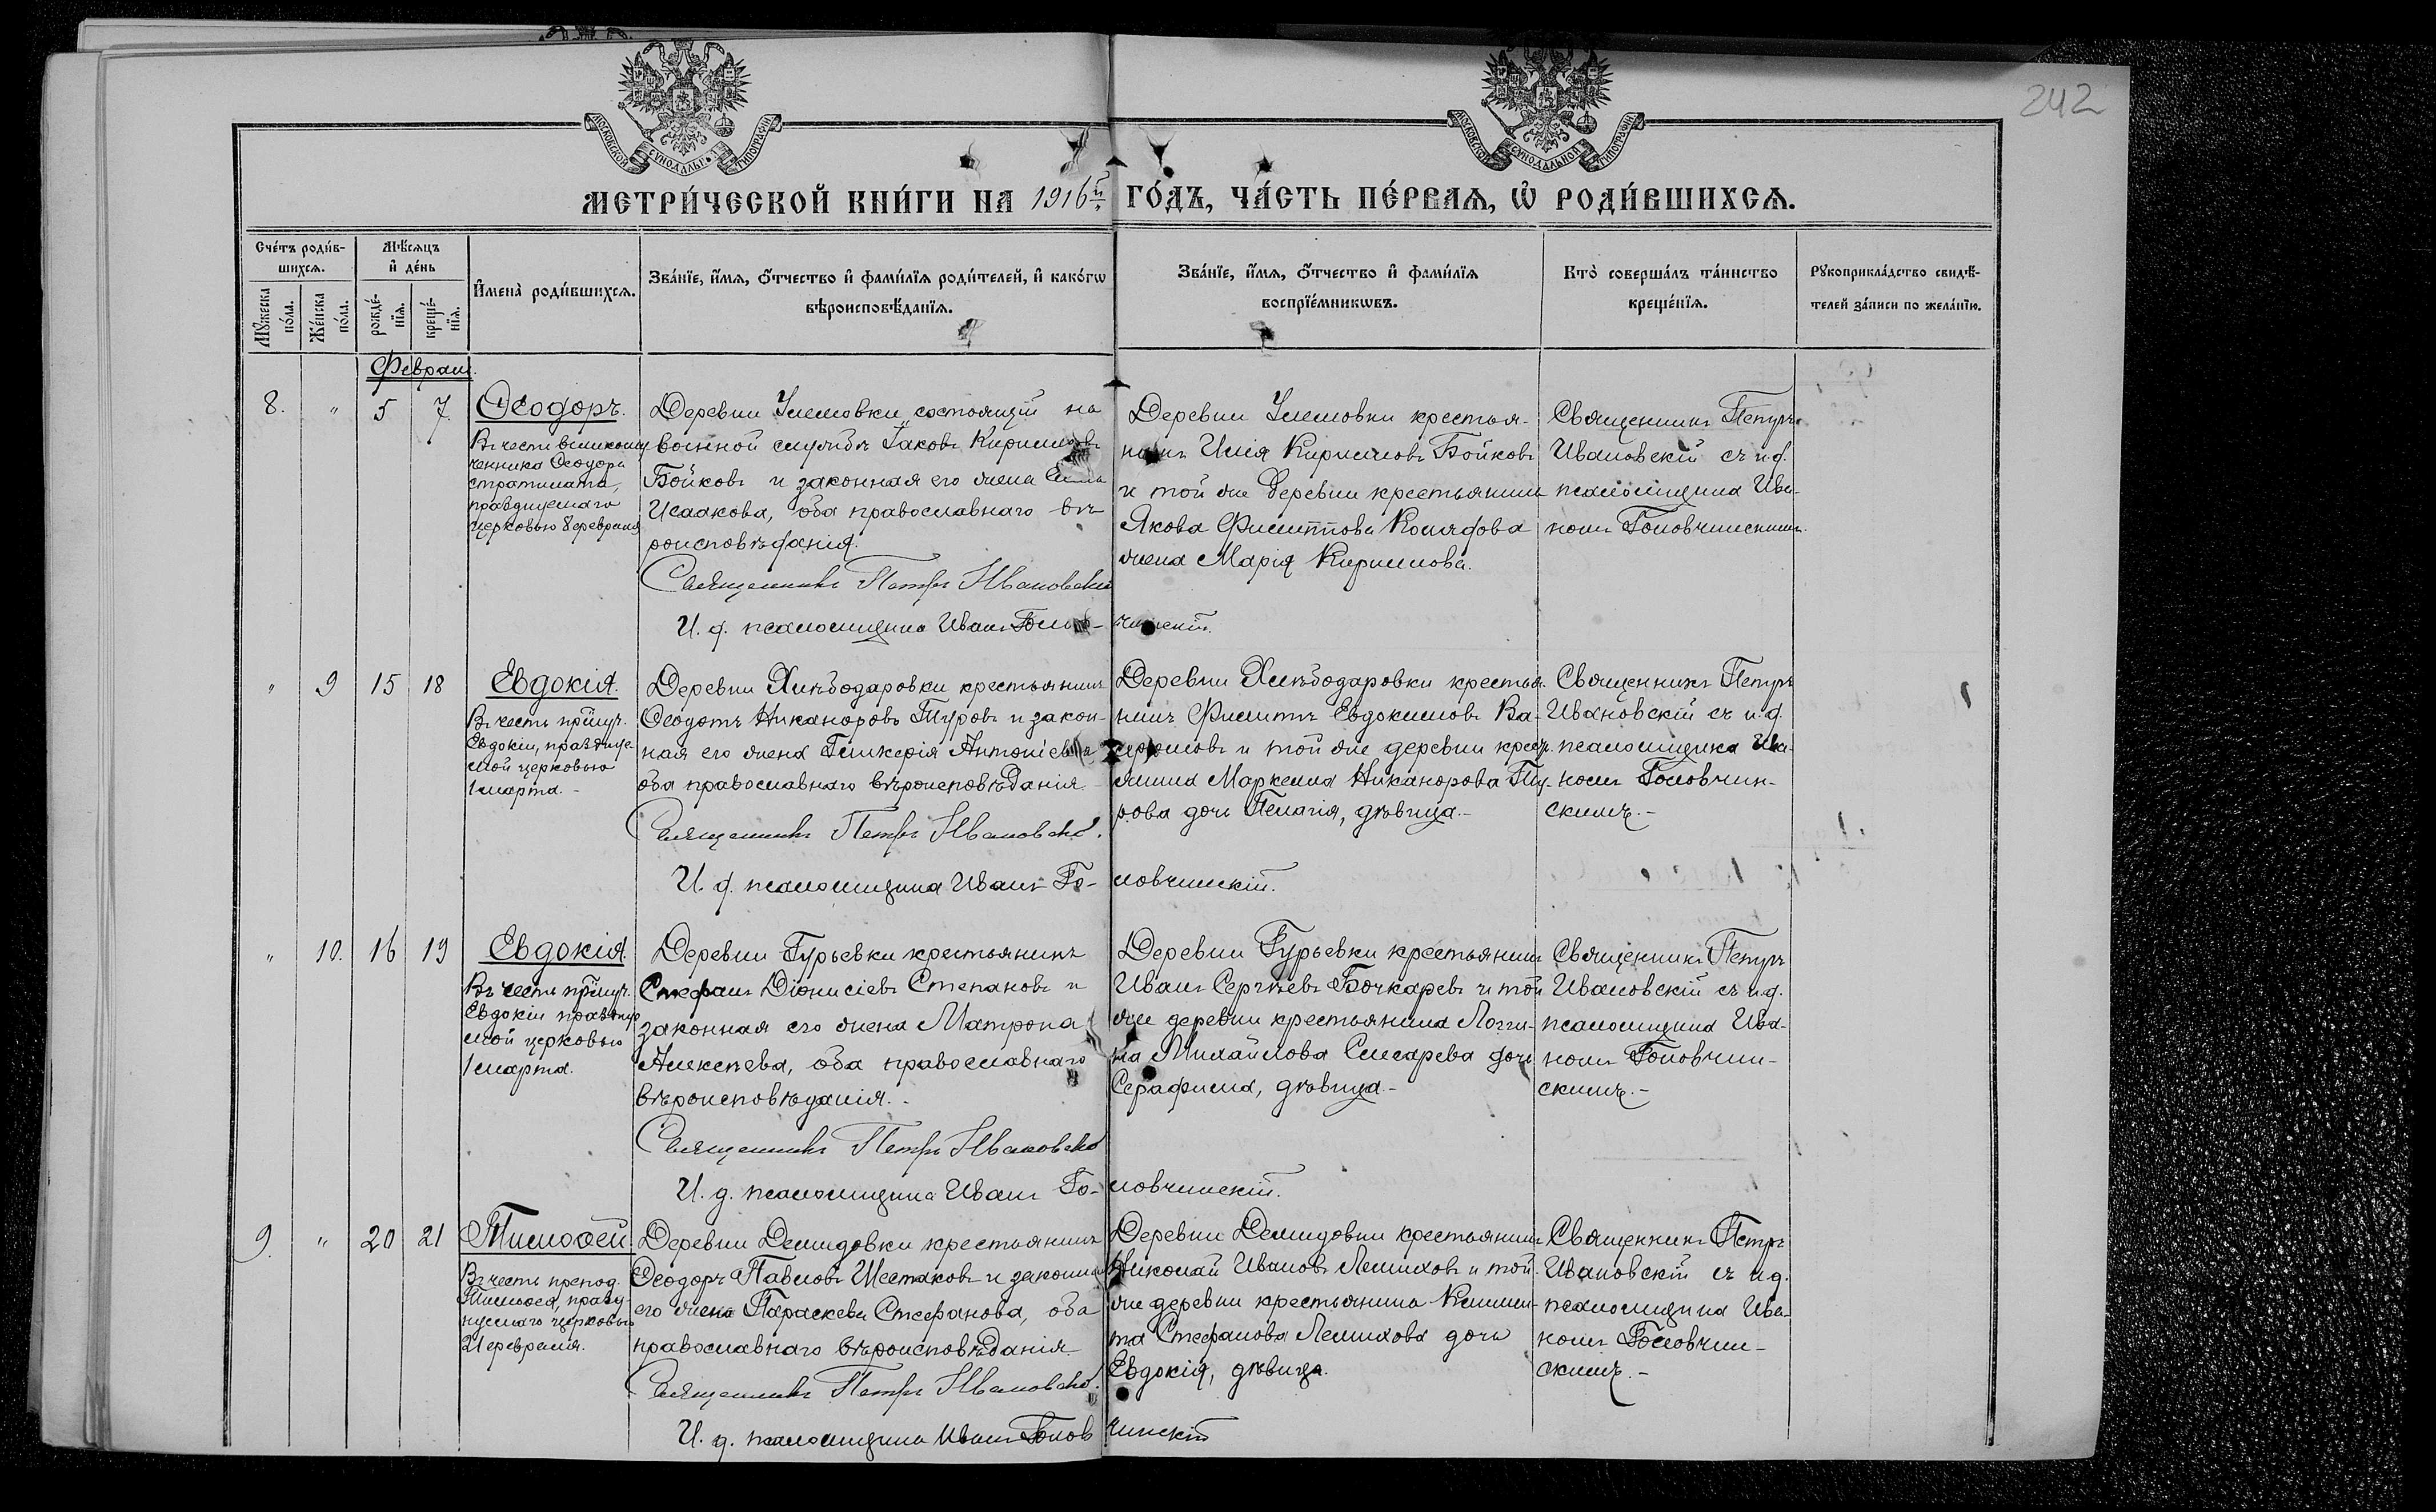 242
МОСКОВСКОЙ СѴНОДАЛЬНОЙ ТИПОГРАФІИ
МОСКОВСКОЙ СѴНОДАЛЬНОЙ ТИПОГРАФІИ
МЕТРИ́ЧЕСКОЙ КНИ́ГИ НА 1916й ГО́ДЪ, ЧА́СТЬ ПЕ́РВАѦ, Ѡ҆ РОДИ́ВШИХСѦ.
Сче́тъ роди́в-
шихсѧ.
Мꙋ́жеска по́ла.
Же́нска по́ла.
Мѣ́сѧцъ
и҆ де́нь
рожде́-
нїѧ.
креще́-
нїѧ.
И҆мена̀ роди́вшихсѧ.
Зва́нїе, и҆́мѧ, ѻ҆́тчество и҆ фами́лїѧ роди́телей, и҆ како́гѡ
вѣроисповѣ́данїѧ.
Зва́нїе, и҆́мѧ, ѻ҆́тчество и҆ фами́лїѧ
воспрїе́мникѡвъ.
Кто̀ соверша́лъ та́инство
креще́нїѧ.
Рꙋкоприкла́дство свидѣ́-
телей за́писи по жела́нїю.
Февраль.
8. " 5 7.
Ѳеодоръ.
Въ честь великому
ченика Ѳеодора
стратилата,
празднуемаго
церковью 8 февраля
Деревни состоящій на
военной службѣ Іаковъ Кирилловъ
Бойковъ и законная его жена
Исаакова, оба православнаго вѣ-
роисповѣданія.
Священникъ Петръ Ивановскій
И. д. псаломщика Иванъ Голов-
чинскій.
Деревни крестья-
нинъ Илія Кирилловъ Бойковъ
и той же деревни крестьянина
Якова Филиппова Колядова
жена Марія Кириллова.
Священникъ Петръ
Ивановскій съ и.д.
псаломщика Ива-
номъ Головчинскимъ.
" 9 15 18
Евдокія.
Въ честь прпмуч.
Евдокіи, празднуе
мой церковью
1 марта.-
Деревни Хлѣбодаровки крестьянинъ
Ѳеодотъ Никаноровъ Туровъ и закон-
ная его жена Гликерія Антоніева
оба православнаго вѣроисповѣданія.-
Священникъ Петръ Ивановскій.
И. д. псаломщика Иванъ Го-
ловчинскій.
Деревни Хлѣбодаровки крестья-
нинъ Филиппъ Евдокимовъ Ва-
и той же деревни крест-
янина Маркелла Никанорова Ту-
рова дочь Пелагія, дѣвица.-
Священникъ Петръ
Ивановскій съ и.д.
псаломщика Ива-
номъ Головчин-
скимъ.-
" 10. 16 19
Евдокія.
Въ честь прпмуч.
Евдокіи празднуе
мой церковью
1 марта.
Деревни Гурьевки крестьянинъ
Стефанъ Діонисіевъ Степановъ и
законная его жена Матрона
Алексѣева, оба православнаго
вѣроисповѣданія.-
Священникъ Петръ Ивановскій
И. д. псаломщика Иванъ Го-
ловчинскій.
Деревни Гурьевки крестьянинъ
Иванъ Сергѣевъ Бочкаревъ и той
же деревни крестьянина Логги-
на Михайлова Слесарева дочь
Серафима, дѣвица.-
Священникъ Петръ
Ивановскій съ и.д.
псаломщика Ива-
номъ Головчин-
скимъ.-
9. " 20 21
Тимоѳей
Въ честь препод.
Тимоѳея, празд-
нуемаго церковью
21 февраля.
Деревни Демидовки крестьянинъ
Ѳеодоръ Павловъ Шестаковъ и законная
его жена Параскева Стефанова, оба
православнаго вѣроисповѣданія.
Священникъ Петръ Ивановскій.
И. д. псаломщика Иванъ Голов
чинскій
Деревни Демидовки крестьянинъ
Николай Ивановъ Лемиховъ и той
же деревни крестьянина Климен-
та Стефанова Лемихова дочь
Евдокія, дѣвица.
Священникъ Петръ
Ивановскій съ и.д.
псаломщика Ива-
номъ Головчин-
скимъ.-